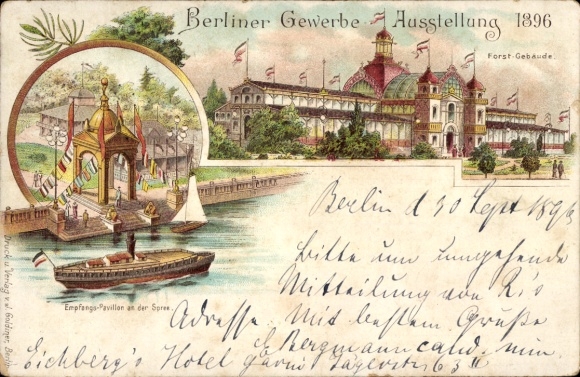 Berliner Gewerbe-Ausstellung 1896
Forst-Gebäude
Empfangs-Pavillon an der Spree
Druck u. Verlag v. J. Goldiner, Berlin
Berlin d 30 Sept 1896
Bitte um umgehende
Mitteilung von R's
Adresse. Mit bestem Gruße
E Bergmann cand. min.
Eichberg's Hotel garni